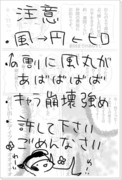 注意
・風→円←ヒロ
・の割に風丸が
あばばばば
・キャラ崩壊強め
・許して下さい
ごめんなさい